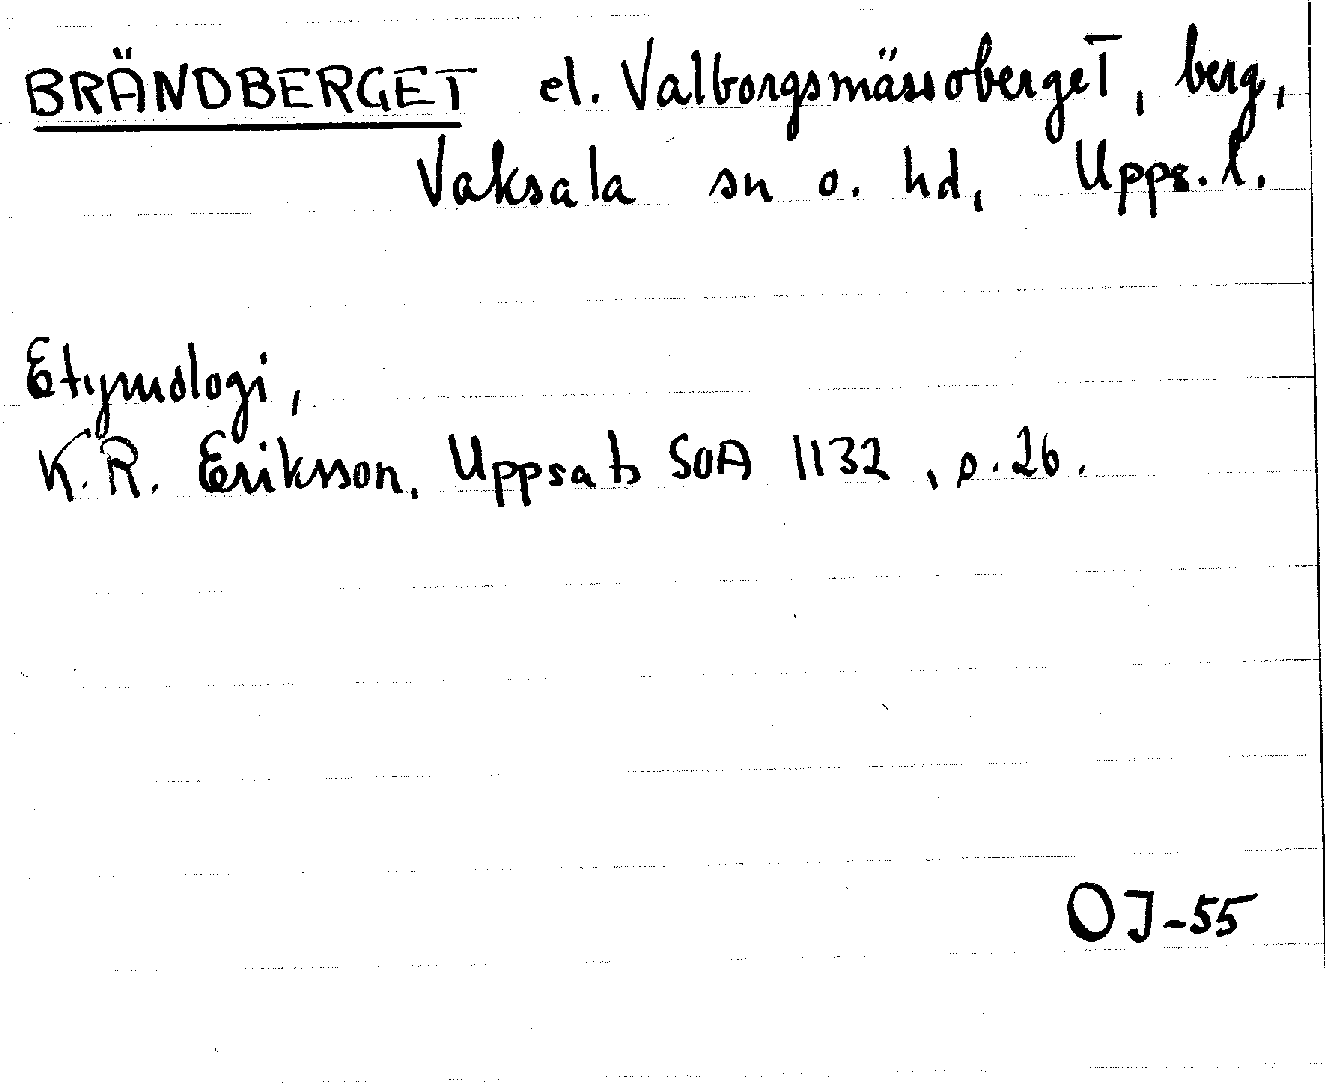 BRÄNDBERGET el. Valborgsmässoberget, berg,
Vaksala sn o. hd, Upps. l.
Etymologi,
K.R. Eriksson, Uppsats SOA 1132, p. 26.
OJ-55